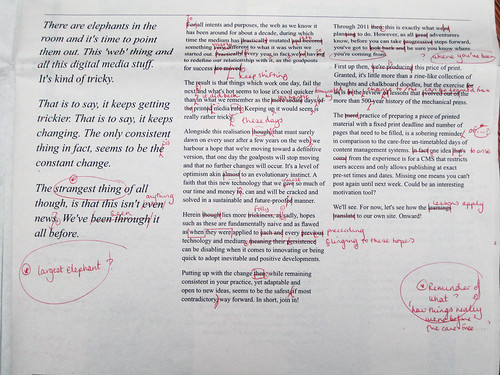 There are elephants in the
room and it's time to point
them out. This 'web' thing and
all this digital media stuff.
It's kind of tricky.
That is to say, it keeps getting
trickier. That is to say, it keeps
changing. The only consistent
thing in fact, seems to be the
constant change.
The strangest thing of all
though, is that this isn't even
anything
new. We've been through it
been
all before.
largest elephant?
For all intents and purposes, the web as we know it
has been around for about a decade, during which
time the medium has practically mutated into
something very different to what it was when we
started out. Practically every year in fact, we're having
to redefine our relationship with it, as the goalposts
for success
keep shifting
The result is that things which work one day, fail the
next and what's hot seems to lose it's cool quicker
than in what we remember as the
the printed media role. Keeping up it would seem is
really rather
these days
Alongside this realisation thought that must surely
dawn on every user after a few years on the web, we
harbour a hope that we're moving toward a definitive
version, that one day the goalposts will stop moving
and that no further changes will occur. It's a level of
optimism akin almost to an evolutionary instinct. A
faith that this new technology that we use so much of
our time and money is, can and will be cracked and
solved in a sustainable and future-proofed manner.
folly
Herein though lies more trickiness, as sadly, hopes
such as these are fundamentally naive and as flawed
as when they were applied to each and every previous
preceding
technology and medium, meaning their persistence
clinging to these hopes
can be disabling when it comes to innovating or being
quick to adopt inevitable and positive developments.
Putting up with the change then while remaining
consistent in your practice, yet adaptable and
open to new ideas, seems to be the safest if most
contradictory way forward. In short, join in!
Through 2011 then, this is exactly what we're
planning to do. However, as all great adventurers
know, before you can take progressive steps forward,
you've got to look back and be sure you know where
you're coming from.
where you've been
First up then, we're producing this piece of print.
Granted, it's little more than a zine-like collection of
thoughts and chalkboard doodles, but the exercise for
us is the
more than 500 year history of the mechanical press.
The practice of preparing a piece of printed
material with a fixed print deadline and number of
pages that need to be filled, is a sobering reminder
in comparison to the care-free un-timetabled days of
content management systems. In fact our idea
comes from the experience is for a CMS that restricts
users access and only allows publishing at exact
pre-set times and dates. Missing one means you can't
post again until next week. Could be an interesting
motivation tool?
We'll see. For now, let's see how the
lessons apply
translate to our own site. Onward!
Reminder of
what?
'how things really
were before
the care-free